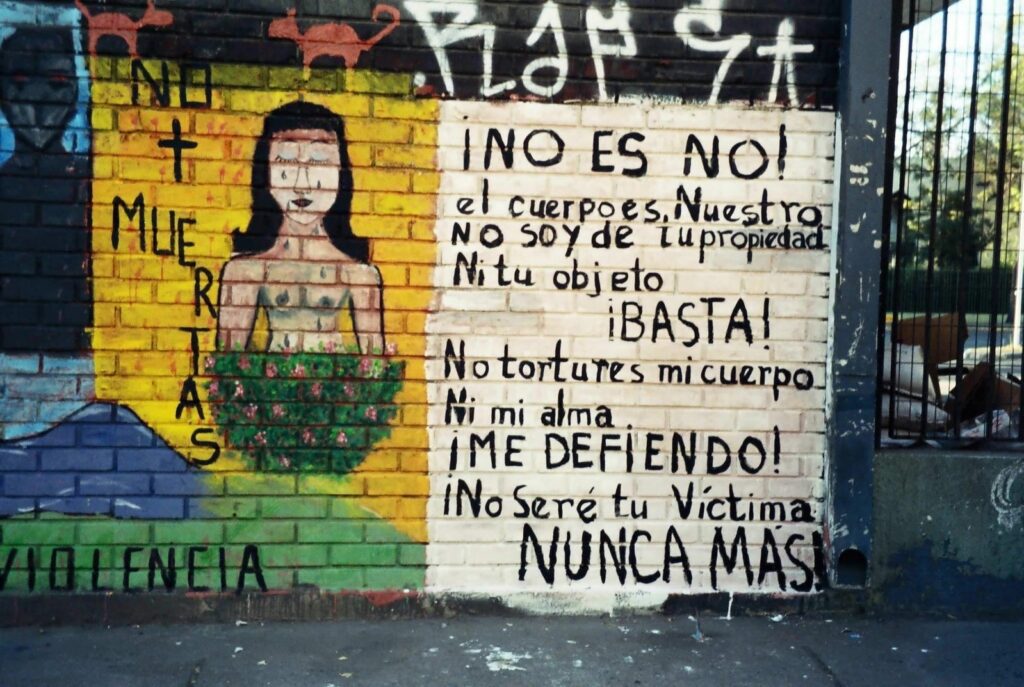 NO
+
MUERTAS
VIOLENCIA
¡NO ES NO!
el cuerpo es, Nuestro
NO soy de tu propiedad
Ni tu objeto
¡BASTA!
No tortures mi cuerpo
Ni mi alma
¡ME DEFIENDO!
¡No Seré tu Víctima
NUNCA MÁS!